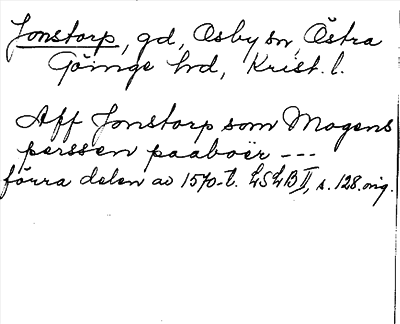 Jonstorp, gd, Osby sn, Östra
Göinge hd, Krist. l.
Aff Jonstorp som Mogens
perssen paaboer ---
förra delen av 1570-t. LSLB II, s. 128.orig.